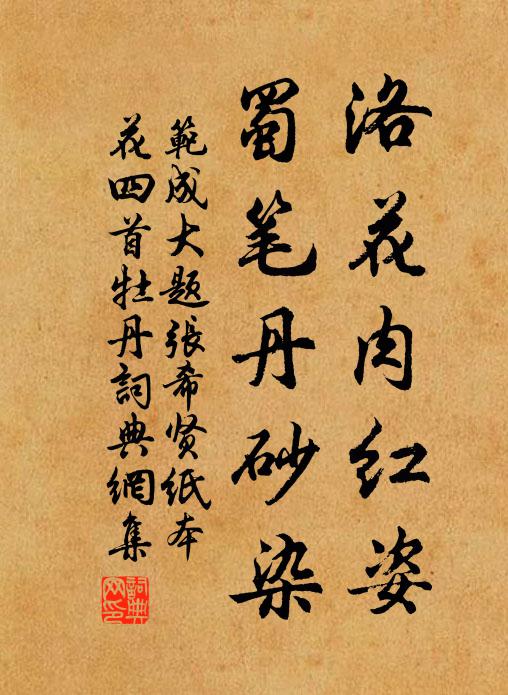 洛花肉红姿
蜀笔丹砂染
範成大题張希贤纸本
花四首牡丹詞典網集
詞典网印